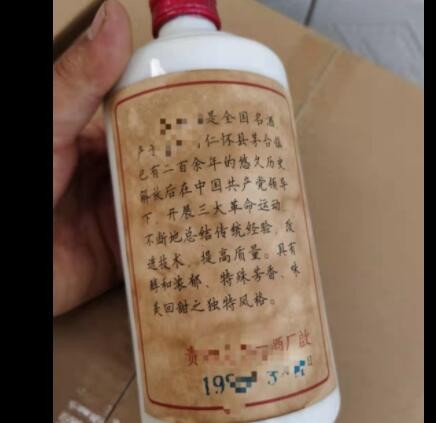 是全国名酒
产于 仁怀县茅台镇
已有二百余年的悠久历史
解放后在中国共产党领导
下 开展三大革命运动
不断地总结传统经验,改
进技术,提高质量。具有
醇和浓郁、特殊芳香、味
美回甜之独特风格。
贵 酒厂啟
19 3 日